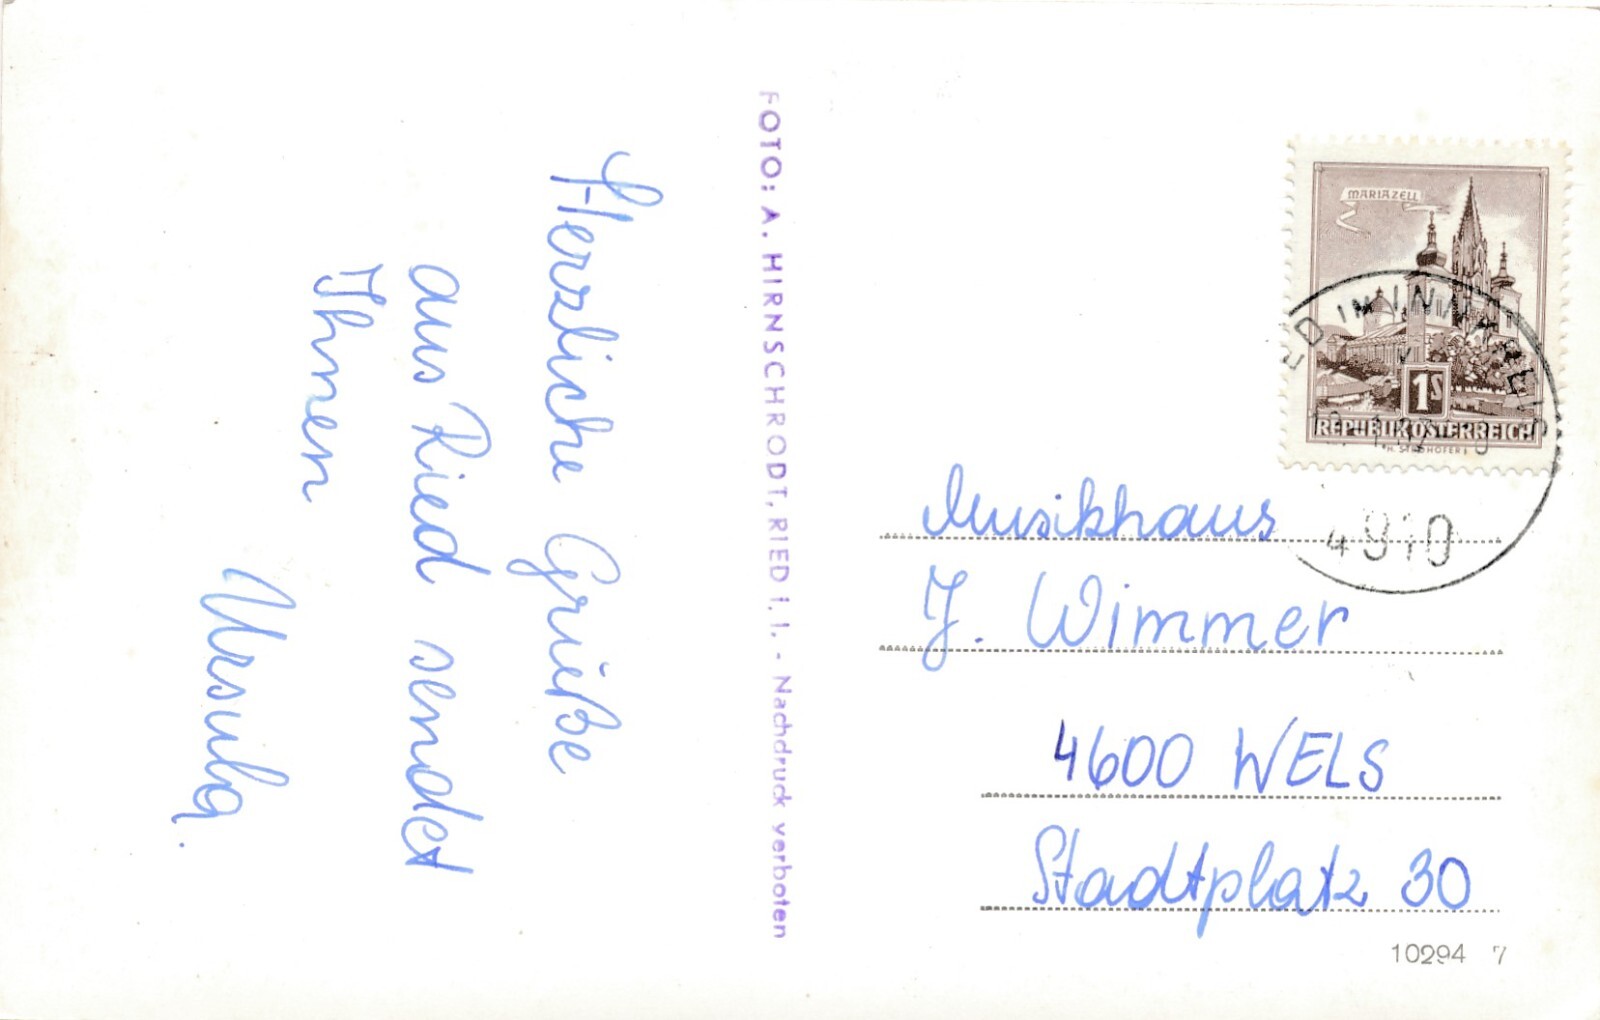 Herzliche Grüße
aus Ried sendet
Ihnen
Ursula.
FOTO: A. HIRNSCHRODT, RIED i. I. - Nachdruck verboten
MARIAZELL
1S
REPUBLIK ÖSTERREICH
4910
Musikhaus
J. Wimmer
4600 WELS
Stadtplatz 30
10294 7